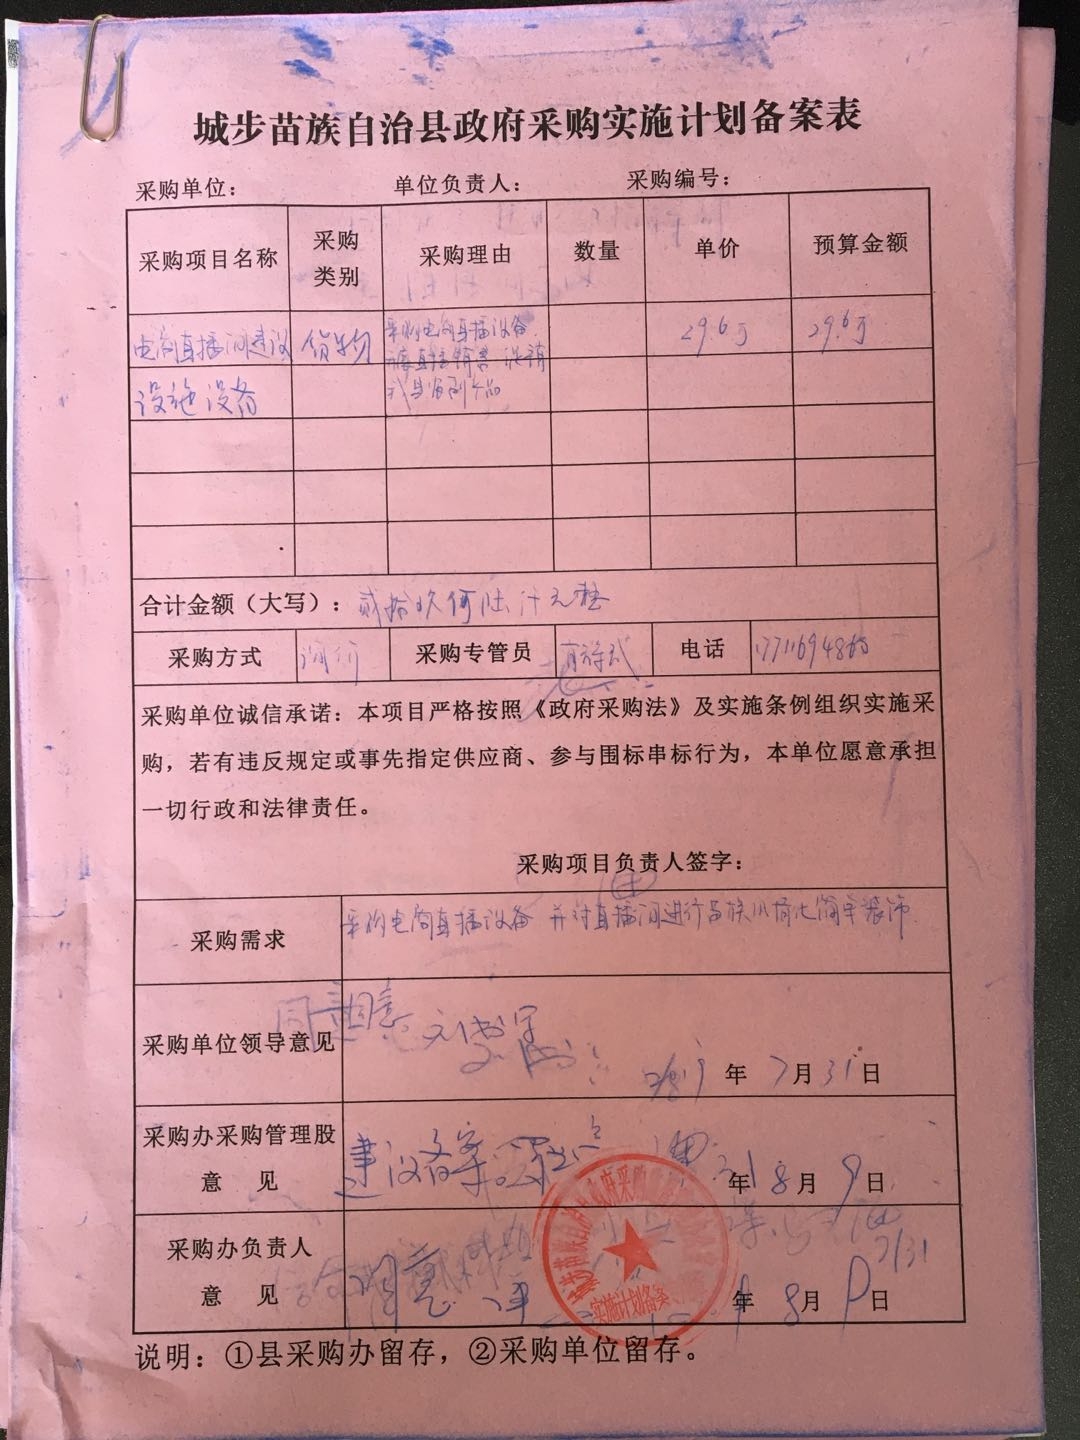 城步苗族自治县政府采购实施计划备案表
采购单位： 单位负责人： 采购编号：
采购项目名称 采购类别 采购理由 数量 单价 预算金额
电商直播间建设 货物 采购电商直播设备 29.6万 29.6万
设施设备
合计金额（大写）：贰拾玖万陆仟元整
采购方式 询价 采购专管员 电话
采购单位诚信承诺：本项目严格按照《政府采购法》及实施条例组织实施采
购，若有违反规定或事先指定供应商、参与围标串标行为，本单位愿意承担
一切行政和法律责任。
采购项目负责人签字：
采购需求 采购电商直播设备 并对直播间进行苗族
采购单位领导意见 同意 年 7月31日
采购办采购管理股
意 见 建议备案 年 8月9日
采购办负责人
意 见 同意 年 8月 日
7/31
实施计划备案
说明：①县采购办留存，②采购单位留存。